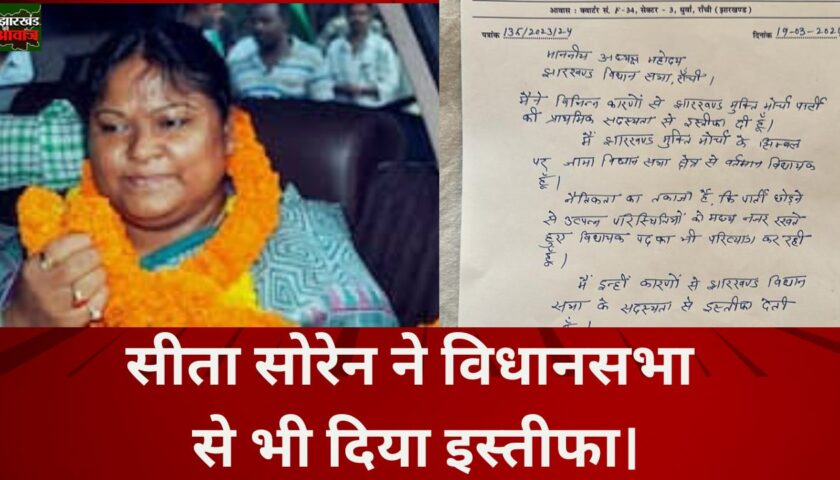 झारखंड
आवाज
आवास : क्वार्टर सं. F-34, सेक्टर - 3, धुर्वा, राँची (झारखण्ड)
पत्रांक 135/2023/24
दिनांक 19-03-202
माननीय अध्यक्ष महोदय
झारखण्ड विधान सभा, राँची।
मैंने विभिन्न कारणों से झारखण्ड मुक्ति मोर्चा पार्टी
की प्राथमिक सदस्यता से इस्तीफा दी हूँ।
मैं झारखण्ड मुक्ति मोर्चा के सिम्बल
पर जामा विधान सभा क्षेत्र से वर्तमान विधायक
हूँ।
नैतिकता का तकाजा है, कि पार्टी छोड़ने
से उत्पन्न परिस्थितियों को मध्य नजर रखते
हुए विधायक पद का भी परित्याग कर रही
हूँ।
मैं इन्हीं कारणों से झारखण्ड विधान
सभा के सदस्यता से इस्तीफा देती
हूँ।
सीता सोरेन ने विधानसभा
से भी दिया इस्तीफा|